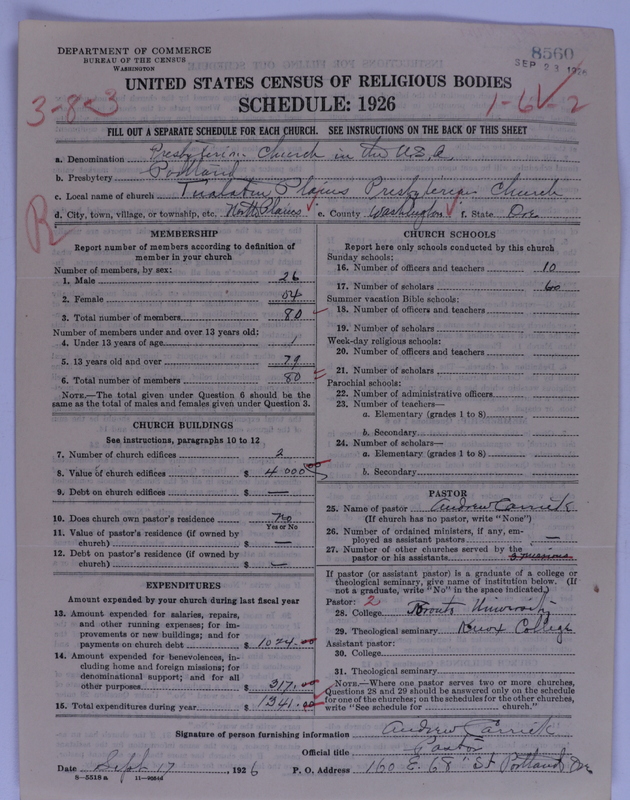 DEPARTMENT OF COMMERCE
BUREAU OF THE CENSUS
WASHINGTON
8560
SEP 23 1926
UNITED STATES CENSUS OF RELIGIOUS BODIES
SCHEDULE: 1926
3-8-3
1-6-2
FILL OUT A SEPARATE SCHEDULE FOR EACH CHURCH. SEE INSTRUCTIONS ON THE BACK OF THIS SHEET
a. Denomination Presbyterian Church in the U.S.A.
b. Presbytery Portland
c. Local name of church Tualatin Plains Presbyterian Church
d. City, town, village, or township, etc. North Plains e. County Washington f. State Ore
R
MEMBERSHIP
Report number of members according to definition of
member in your church
Number of members, by sex:
1. Male 26
2. Female 54
3. Total number of members 80
Number of members under and over 13 years old:
4. Under 13 years of age 1
5. 13 years old and over 79
6. Total number of members 80
NOTE.—The total given under Question 6 should be the
same as the total of males and females given under Question 3.
CHURCH BUILDINGS
See instructions, paragraphs 10 to 12
7. Number of church edifices 2
8. Value of church edifices $ 4000 00
9. Debt on church edifices $ —
10. Does church own pastor's residence No
Yes or No
11. Value of pastor's residence (if owned by
church) $ —
12. Debt on pastor's residence (if owned by
church) $ —
EXPENDITURES
Amount expended by your church during last fiscal year
13. Amount expended for salaries, repairs,
and other running expenses; for im-
provements or new buildings; and for
payments on church debt $ 1024.00
14. Amount expended for benevolences, in-
cluding home and foreign missions; for
denominational support; and for all
other purposes $ 317.00
15. Total expenditures during year $ 1341.00
CHURCH SCHOOLS
Report here only schools conducted by this church
Sunday schools:
16. Number of officers and teachers 10
17. Number of scholars 60
Summer vacation Bible schools:
18. Number of officers and teachers
19. Number of scholars
Week-day religious schools:
20. Number of officers and teachers
21. Number of scholars
Parochial schools:
22. Number of administrative officers
23. Number of teachers—
a. Elementary (grades 1 to 8)
b. Secondary
24. Number of scholars—
a. Elementary (grades 1 to 8)
b. Secondary
PASTOR
25. Name of pastor Andrew Carrick
(If church has no pastor, write "None")
26. Number of ordained ministers, if any, em-
ployed as assistant pastors —
27. Number of other churches served by the
pastor or his assistants
If pastor (or assistant pastor) is a graduate of a college or
theological seminary, give name of institution below. (If
not a graduate, write "No" in the space indicated.)
Pastor: 2
28. College Toronto University
29. Theological seminary Knox College
Assistant pastor:
30. College
31. Theological seminary
NOTE.—Where one pastor serves two or more churches,
Questions 28 and 29 should be answered only on the schedule
for one of the churches; on the schedules for the other churches,
write "See schedule for church."
Signature of person furnishing information Andrew Carrick
Official title Pastor
Date Sept 17, 1926 P. O. Address 160 E. 68" St Portland Ore
8—5518 a